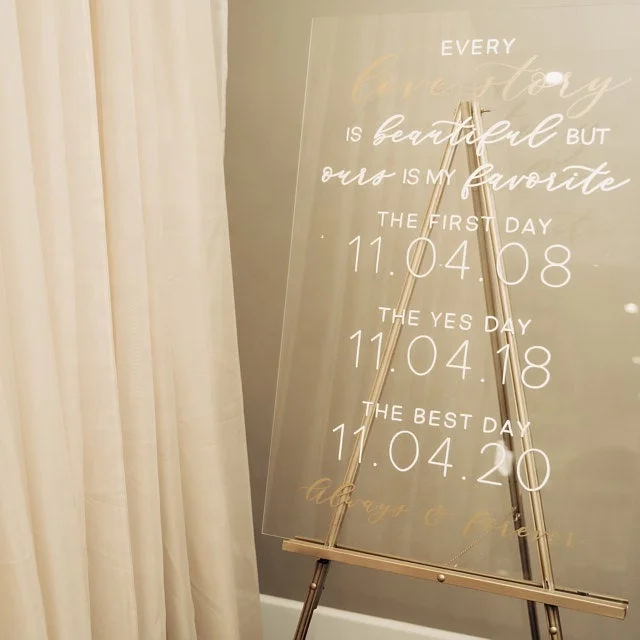 EVERY
love story
IS beautiful BUT
ours IS MY favorite
THE FIRST DAY
11.04.08
THE YES DAY
11.04.18
THE BEST DAY
11.04.20
Always & forever